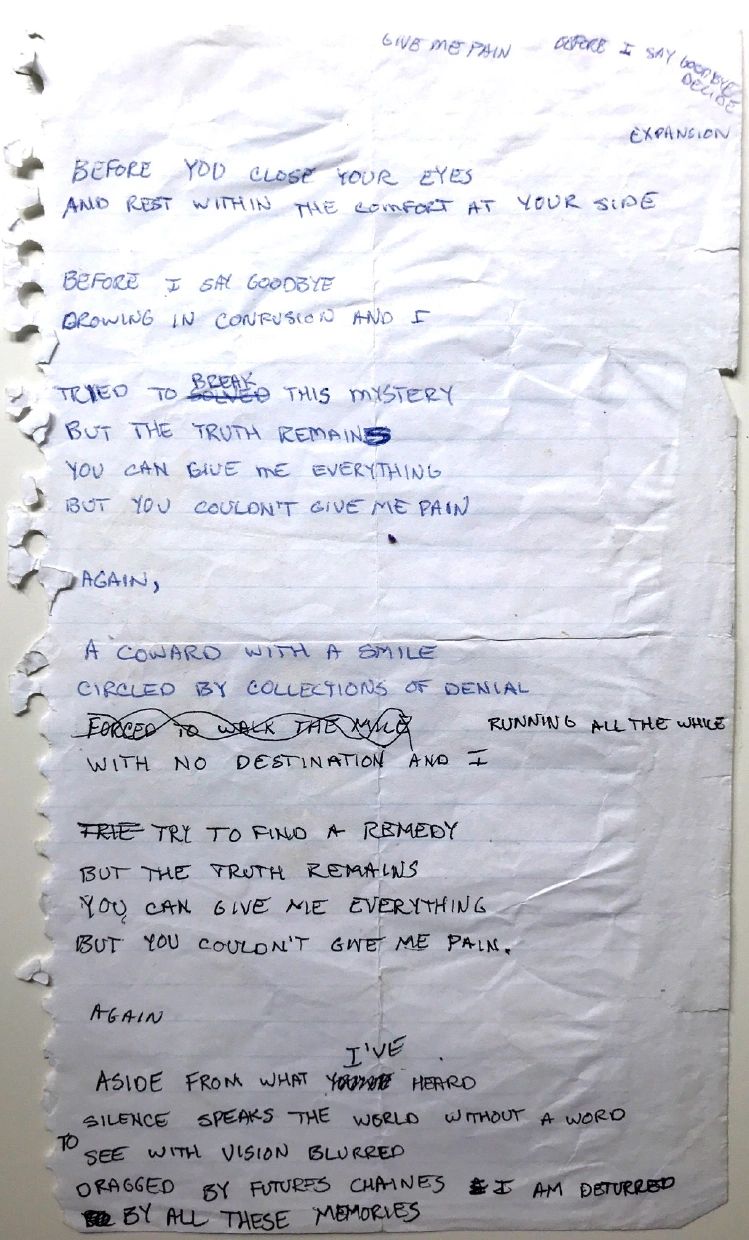 GIVE ME PAIN BEFORE I SAY GOODBYE
DECIDE
EXPANSION
BEFORE YOU CLOSE YOUR EYES
AND REST WITHIN THE COMFORT AT YOUR SIDE
BEFORE I SAY GOODBYE
DROWING IN CONFUSION AND I
TRYED TO SOLVED BREAK THIS MYSTERY
BUT THE TRUTH REMAINS
YOU CAN GIVE ME EVERYTHING
BUT YOU COULDN'T GIVE ME PAIN
AGAIN,
A COWARD WITH A SMILE
CIRCLED BY COLLECTIONS OF DENIAL
FORCED TO WALK THE MILE RUNNING ALL THE WHILE
WITH NO DESTINATION AND I
TRIE TRY TO FIND A REMEDY
BUT THE TRUTH REMAINS
YOU CAN GIVE ME EVERYTHING
BUT YOU COULDN'T GIVE ME PAIN.
AGAIN
I'VE
ASIDE FROM WHAT HEARD
SILENCE SPEAKS THE WORLD WITHOUT A WORD
TO SEE WITH VISION BLURRED
DRAGGED BY FUTURES CHAINES I AM DETURRED
BY ALL THESE MEMORIES